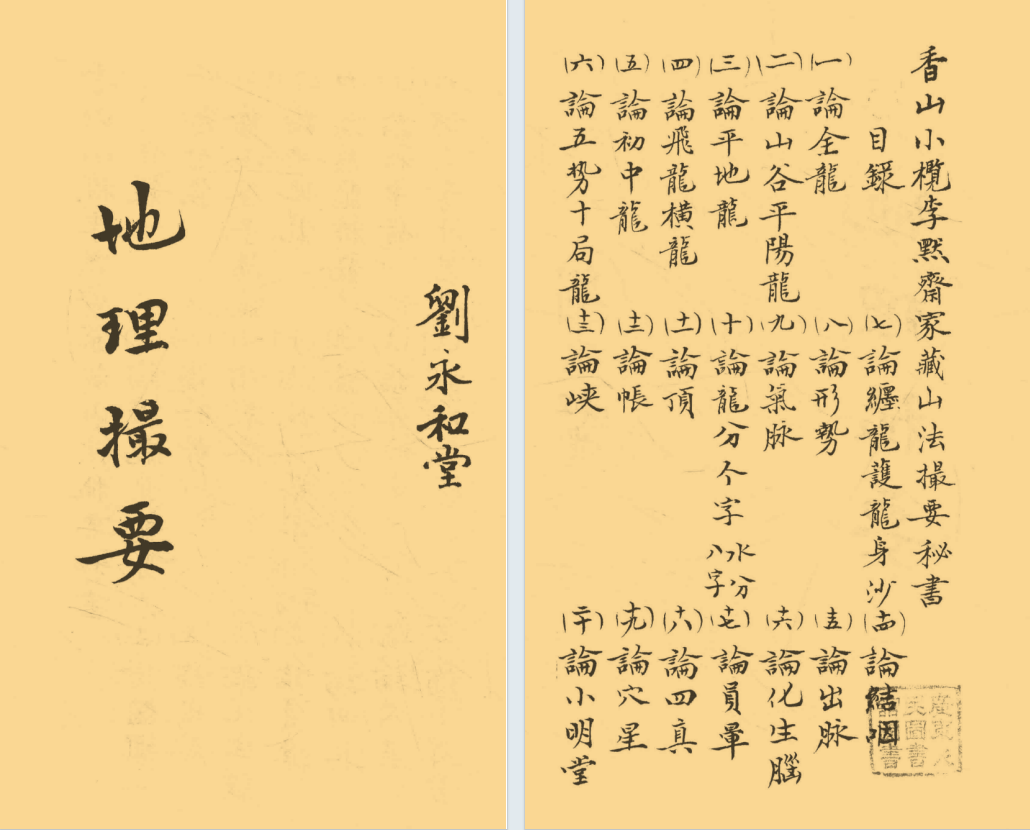 劉永和堂
地理撮要
香山小欖李黙齋家藏山法撮要秘書
目錄
(一)論全龍
(二)論山谷平陽龍
(三)論平地龍
(四)論飛龍橫龍
(五)論初中龍
(六)論五势十局龍
(七)論纏龍護龍身沙
(八)論形勢
(九)論氣脉
(十)論龍分个字水分八字
(十一)論頂
(十二)論帳
(十三)論峡
(十四)論結咽
(十五)論出脉
(十六)論化生腦
(十七)論員暈
(十八)論四真
(十九)論穴星
(二十)論小明堂